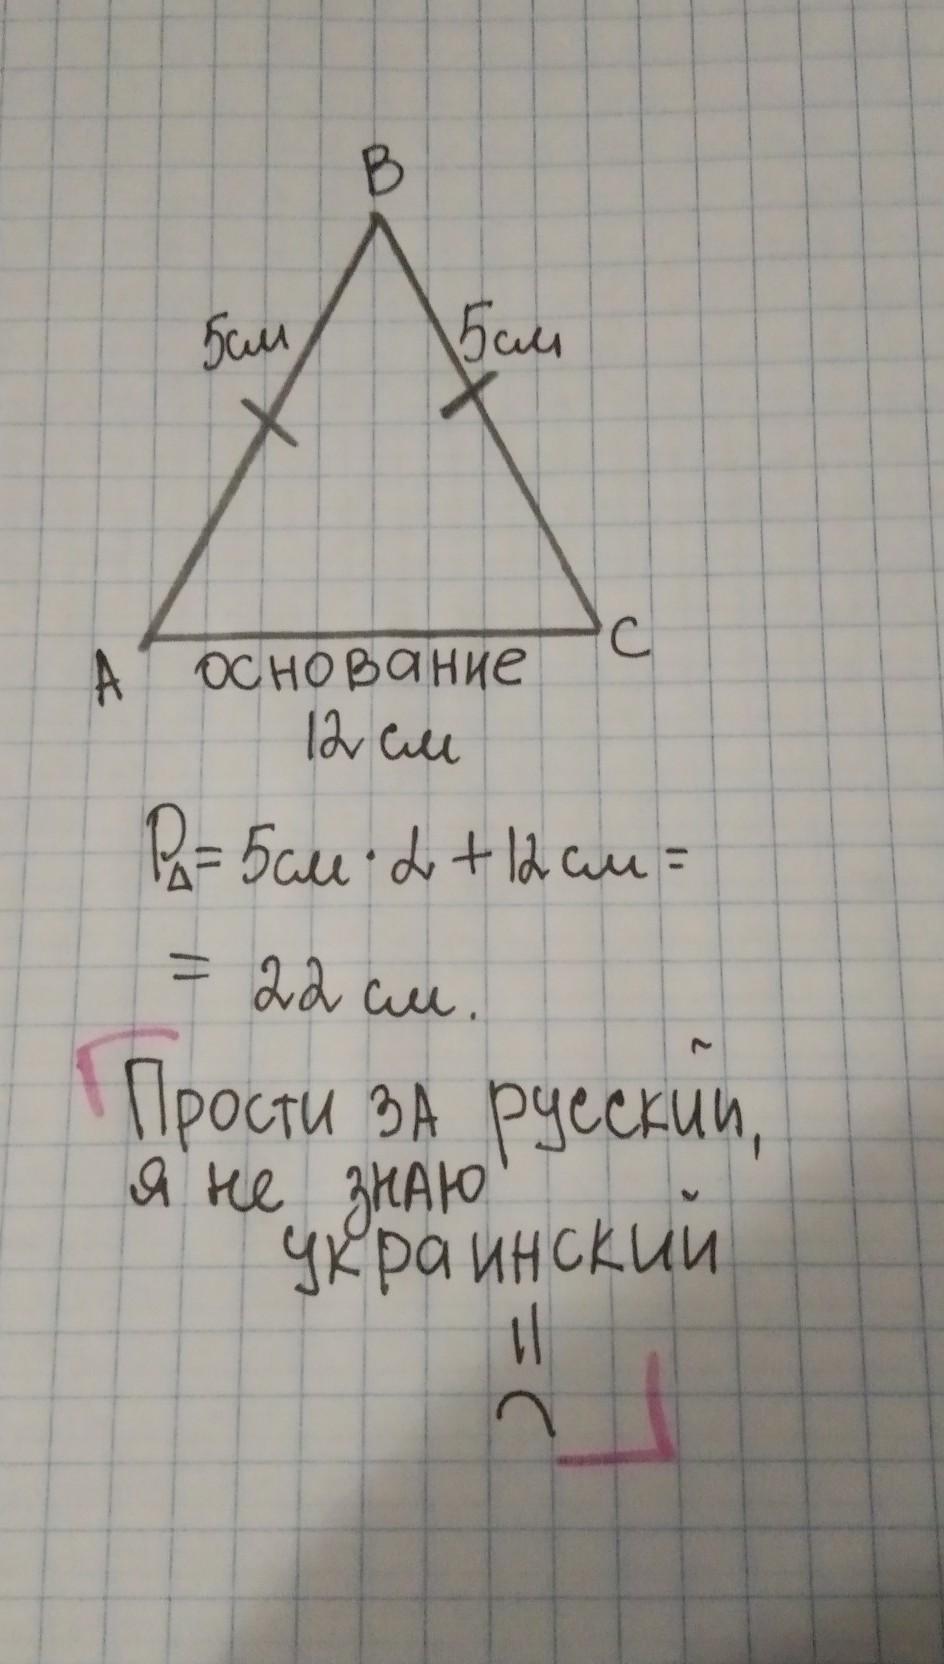 B
5см
5см
A
C
основание
12 см
P△ = 5см · 2 + 12 см =
= 22 см.
Прости за русский,
я не знаю
украинский